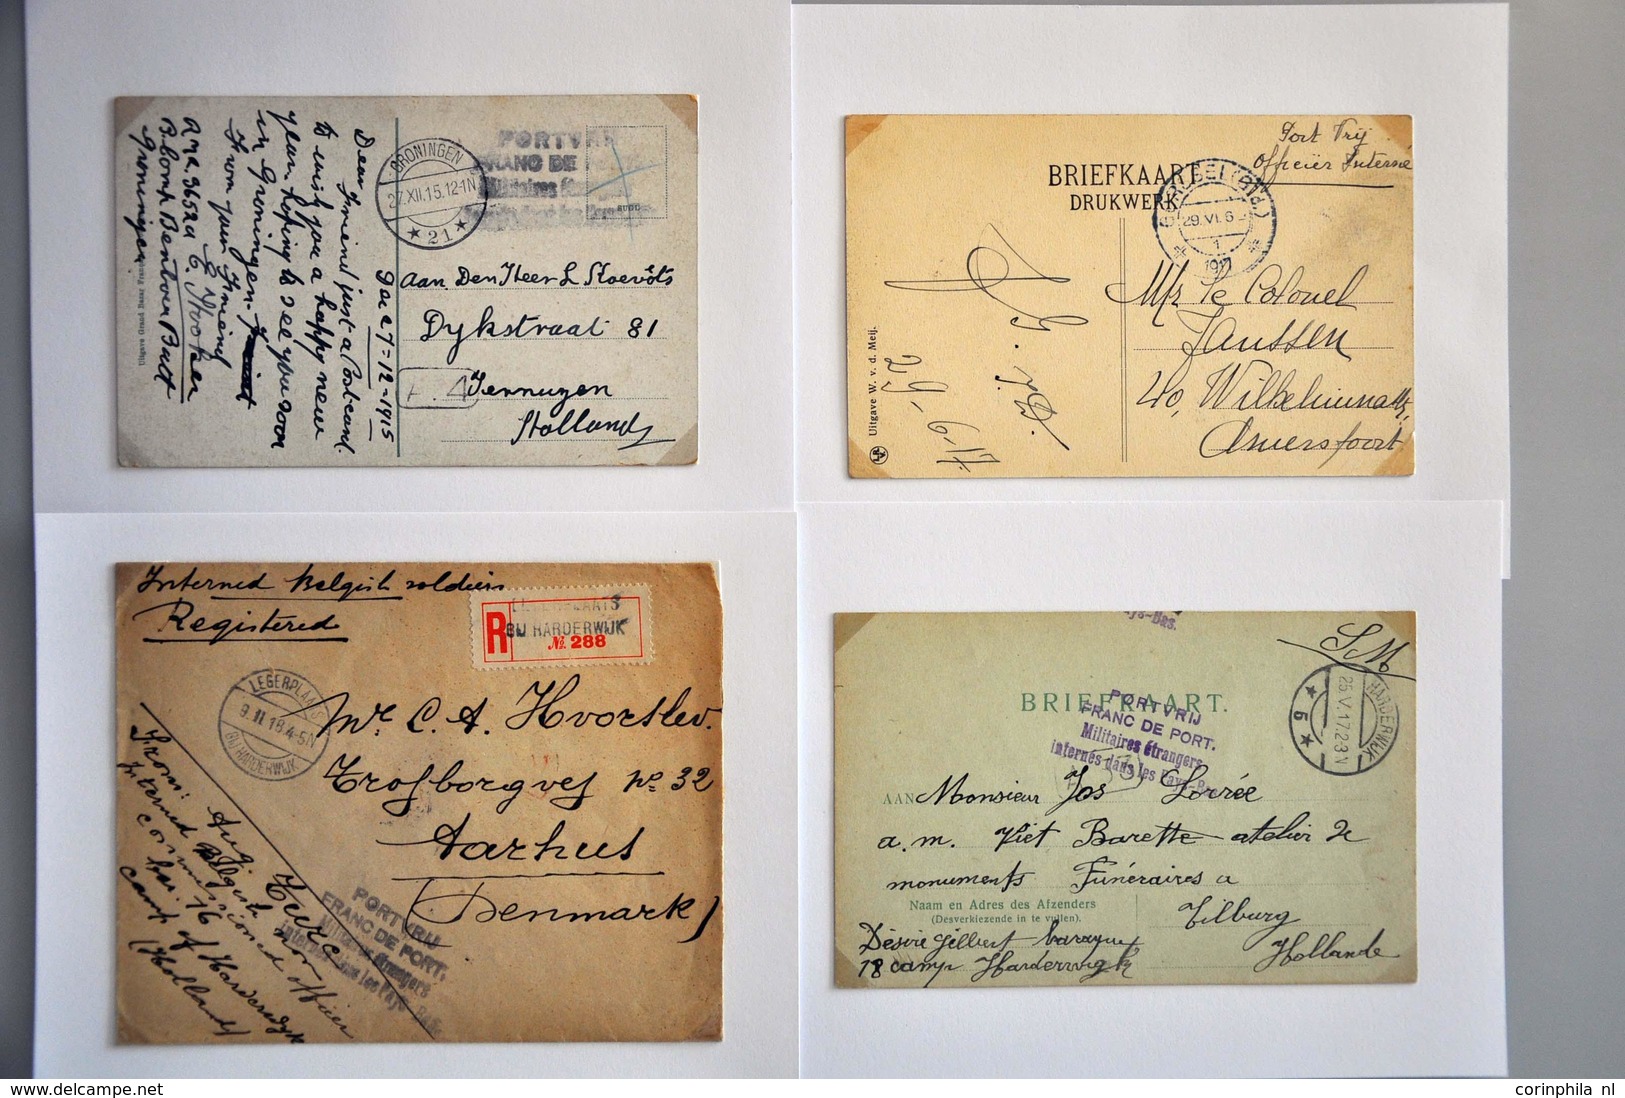 Dear Frieind just a Postcard
to wish you a happy new
year hoping to see you soon
in Groningen.
from your frieind
Groningen
Uitgave Grand Bazar Français
GRONINGEN
27.XII.15.12-1N
★ 21 ★
PORTVRIJ
FRANC DE
Militaires étrangers
7-12-1915
Aan Den Heer L Stoevöts
Dykstraat 81
Holland
BRIEFKAART
DRUKWERK
Port Vrij
Officier Interné
29.VI.6
1
Mr le Colonel
Janssen
40, Wilhelmina
Amersfoort
29-6-17
Uitgave W. v. d. Meij.
Interned Belgish soldiers
Registered
R
LEGERPLAATS
BIJ HARDERWIJK
No. 288
LEGERPLAATS
9.II.18.4-5N
BIJ HARDERWIJK
Mr C. A. Hvorslev.
No 32
Aarhus
(Denmark)
From:
Interned Belgish non
commissioned officer
bar. 16
camp of Harderwyk
(Holland)
PORTVRIJ
FRANC DE PORT.
Militaires étrangers
internés dans les Pays-Bas.
Pays-Bas.
S.M.
BRIEFKAART.
PORTVRIJ
FRANC DE PORT.
Militaires étrangers
internés dans les Pays-Bas.
HARDERWIJK
25.V.17.2-3N
★ 5 ★
AAN Monsieur Jos Lorrée
a.m. Piet Barette atelier de
monuments Funéraires a
Naam en Adres des Afzenders
(Desverkiezende in te vullen).
Tilburg
Hollande
Désiré Gilbert baraque
18 camp Harderwyk
corinphila nl
www.delcampe.net